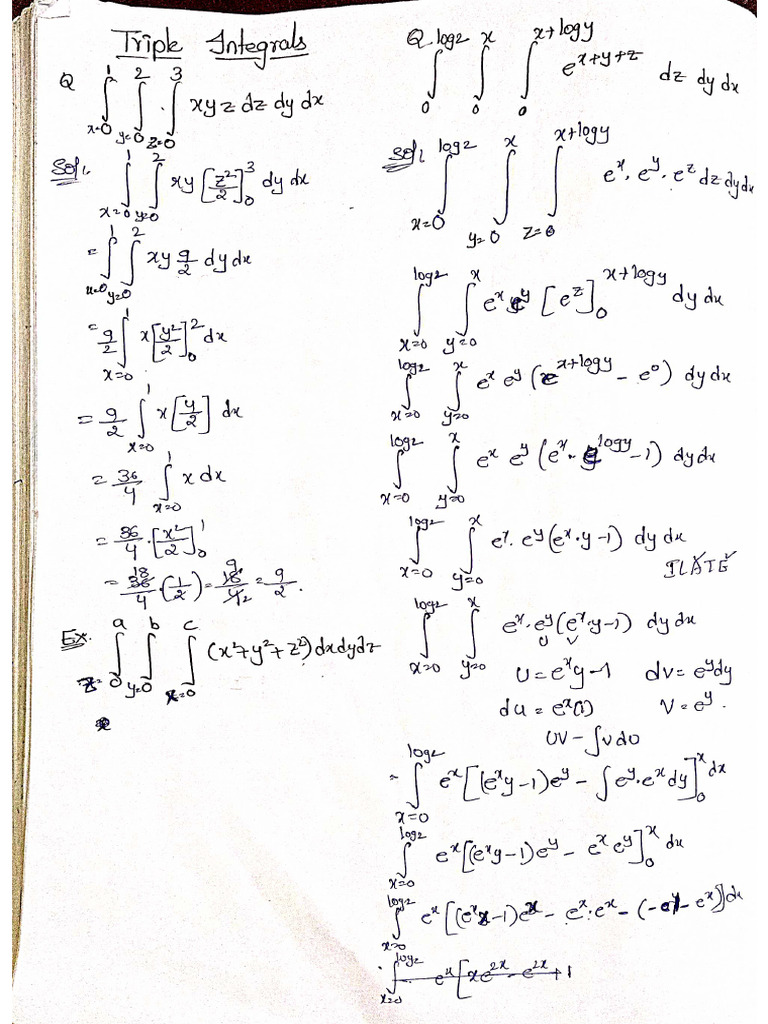 Triple Integrals
Q ∫_{x=0}^{1} ∫_{y=0}^{2} ∫_{z=0}^{3} xyz dz dy dx
Sol. ∫_{x=0}^{1} ∫_{y=0}^{2} xy [z²/2]_0^3 dy dx
= ∫_{x=0}^{1} ∫_{y=0}^{2} xy 9/2 dy dx
= 9/2 ∫_{x=0}^{1} x[y²/2]_0^2 dx
= 9/2 ∫_{x=0}^{1} x[4/2] dx
= 36/4 ∫_{x=0}^{1} x dx
= 36/4 · [x²/2]_0^1
= 36/4 · (1/2) = 18/4 = 9/2.
Ex. ∫_{z=0}^{a} ∫_{y=0}^{b} ∫_{x=0}^{c} (x²+y²+z²) dx dy dz
Q. ∫_0^{log2} ∫_0^{x} ∫_0^{x+logy} e^{x+y+z} dz dy dx
Sol. ∫_{x=0}^{log2} ∫_{y=0}^{x} ∫_{z=0}^{x+logy} e^x · e^y · e^z dz dy dx
∫_{x=0}^{log2} ∫_{y=0}^{x} e^x e^y [e^z]_0^{x+logy} dy dx
∫_{x=0}^{log2} ∫_{y=0}^{x} e^x e^y (e^{x+logy} - e^0) dy dx
∫_{x=0}^{log2} ∫_{y=0}^{x} e^x e^y (e^x · e^{logy} - 1) dy dx
∫_{x=0}^{log2} ∫_{y=0}^{x} e^x · e^y (e^x · y - 1) dy dx
ILATE
∫_{x=0}^{log2} ∫_{y=0}^{x} e^x · e^y (e^x · y - 1) dy dx
U V
U = e^x y - 1 dv = e^y dy
du = e^x (1) V = e^y.
UV - ∫v du
= ∫_{x=0}^{log2} e^x [(e^x y - 1) e^y - ∫ e^y · e^x dy]_0^x dx
∫_{x=0}^{log2} e^x [(e^x y - 1) e^y - e^x e^y]_0^x dx
∫_{x=0}^{log2} e^x [(e^x x - 1) e^x - e^x · e^x - (-1 - e^x)] dx
∫_{x=0}^{log2} e^x [x e^{2x} - e^{2x} + 1